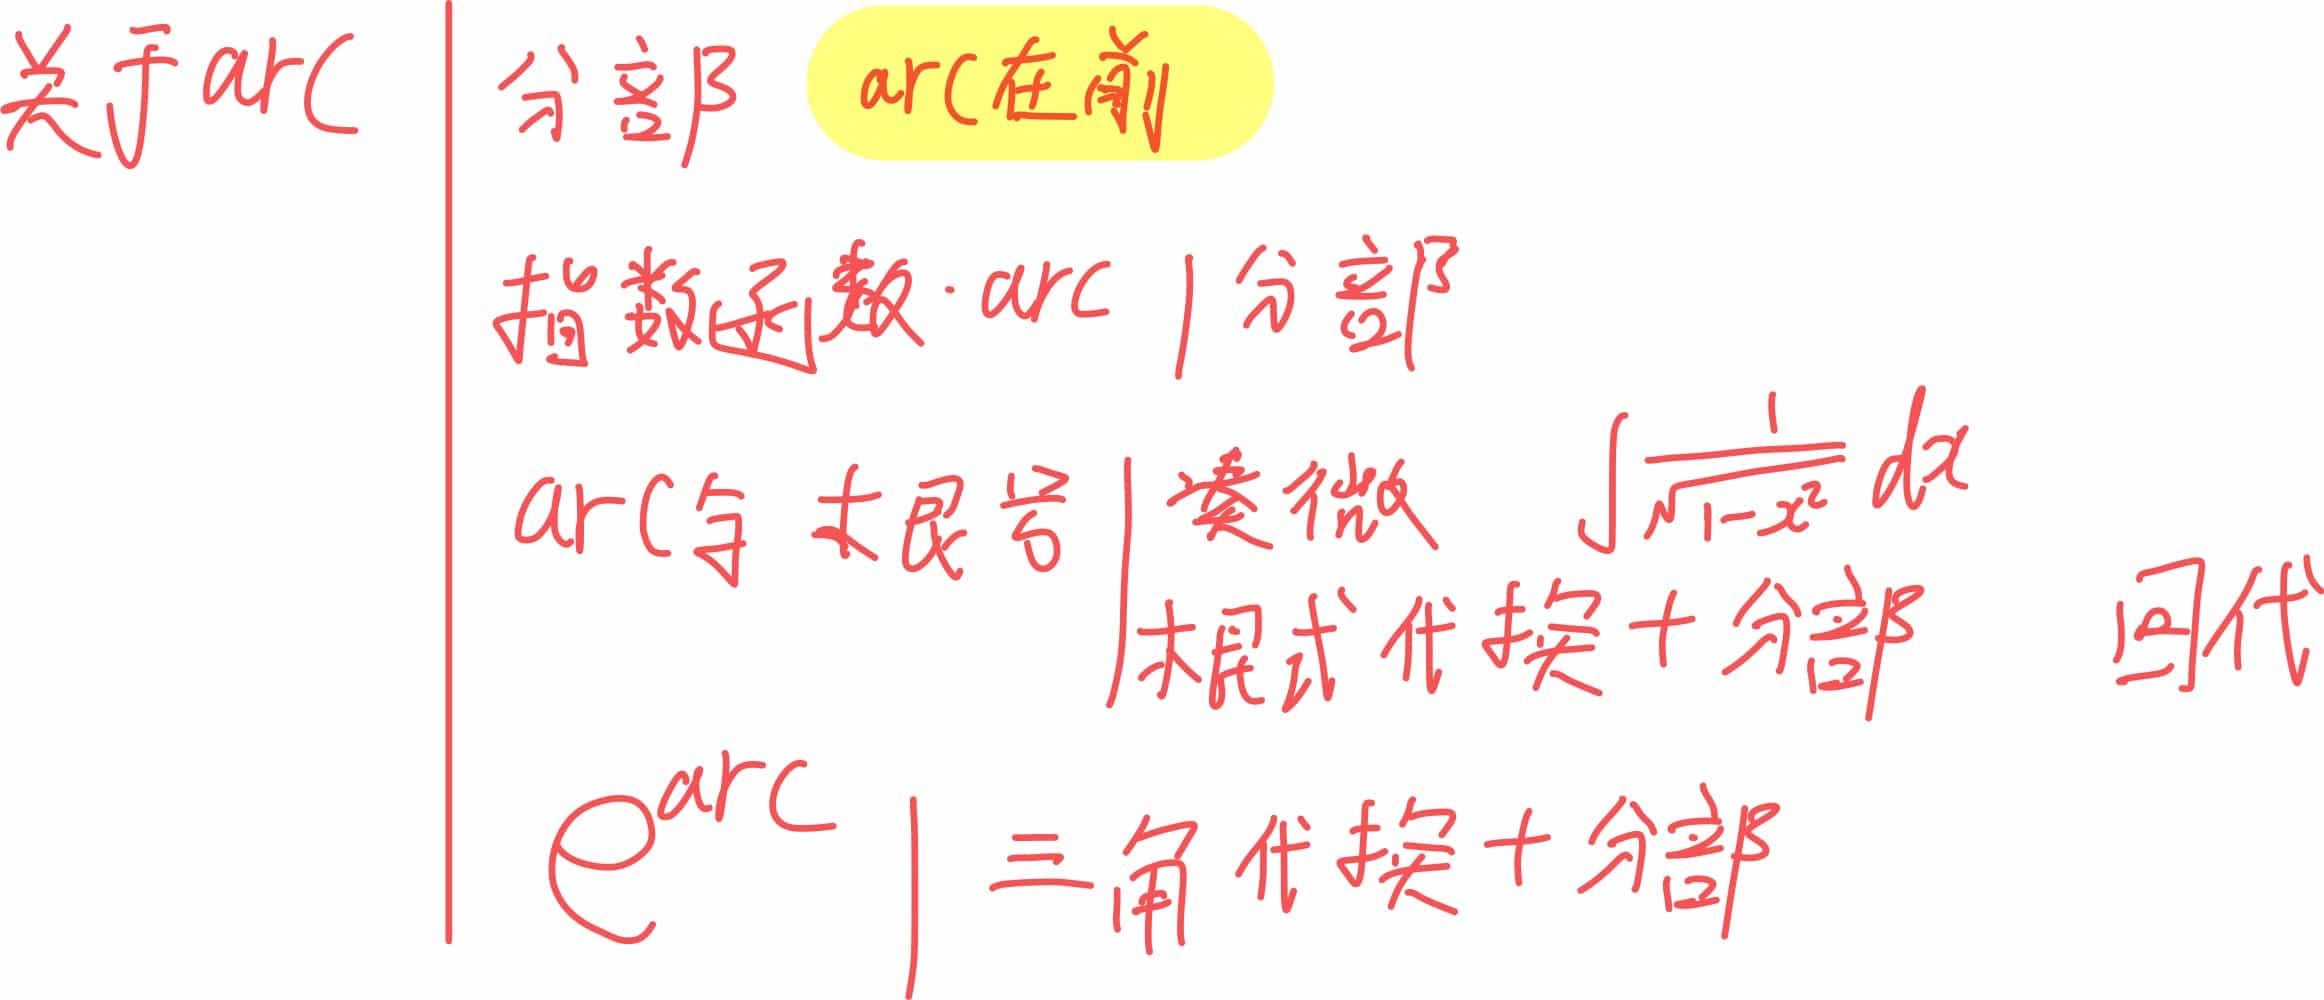 关于arc 分部 arc在前
指数函数·arc | 分部
arc与大根号 | 凑微 ∫ 1/√(1-x²) dx
大根式代换+分部 回代
e^arc | 三角代换+分部